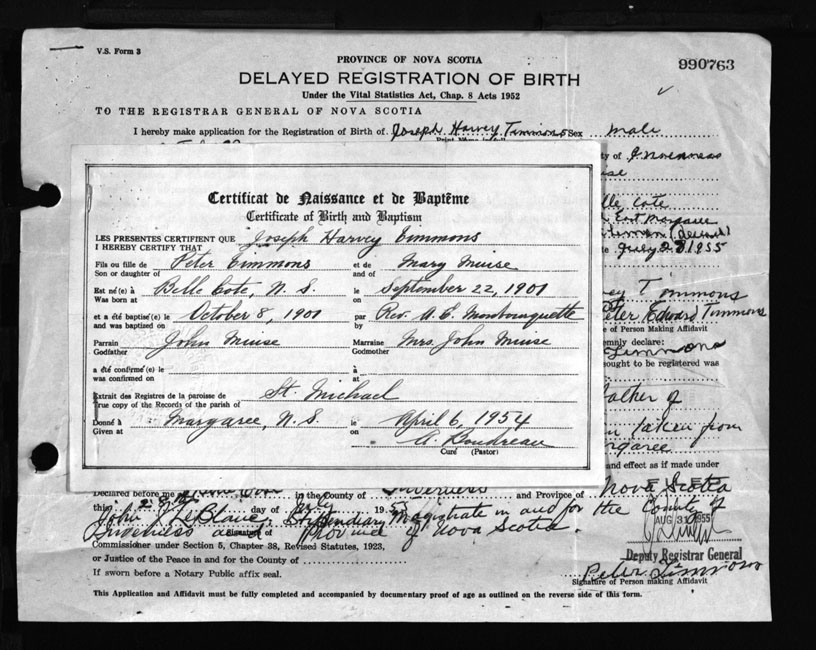 V.S. Form 3
PROVINCE OF NOVA SCOTIA
990763
DELAYED REGISTRATION OF BIRTH
Under the Vital Statistics Act, Chap. 8 Acts 1952
TO THE REGISTRAR GENERAL OF NOVA SCOTIA
I hereby make application for the Registration of Birth of Joseph Harvey Timmons Sex male
ty of Inverness
ise
lle Cote
East Margaree
July 28 1955
Certificat de Naissance et de Baptême
Certificate of Birth and Baptism
LES PRESENTES CERTIFIENT QUE
I HEREBY CERTIFY THAT Joseph Harvey Timmons
Fils ou fille de Peter Timmons et de Mary Muise
Son or daughter of and of
Est né(e) à Belle Cote, N. S. le September 22, 1901
Was born at on
et a été baptisé(e) le October 8, 1901 par Rev. A. E. Monbourquette
and was baptized on by
Parrain John Muise Marraine Mrs. John Muise
Godfather Godmother
a été confirmé(e) le à
was confirmed on at
Extrait des Registres de la paroisse de St. Michael
True copy of the Records of the parish of
Donné à Margaree, N. S. le April 6, 1954
Given at on
A. Boudreau
Curé (Pastor)
vey Timmons
Peter Edward Timmons
e of Person Making Affidavit
emnly declare:
Timmons
sought to be registered was
father of
taken from
rgaree
and effect as if made under
Declared before me at in the County of Inverness and Province of Nova Scotia
this 28th day of July 195
John J LeBlanc, Stipendiary Magistrate in and for the County of
Inverness and Province of Nova Scotia.
AUG 31 1955
Commissioner under Section 5, Chapter 38, Revised Statutes, 1923,
Deputy Registrar General
or Justice of the Peace in and for the County of
Peter Timmons
If sworn before a Notary Public affix seal.
Signature of Person making Affidavit
This Application and Affidavit must be fully completed and accompanied by documentary proof of age as outlined on the reverse side of this form.